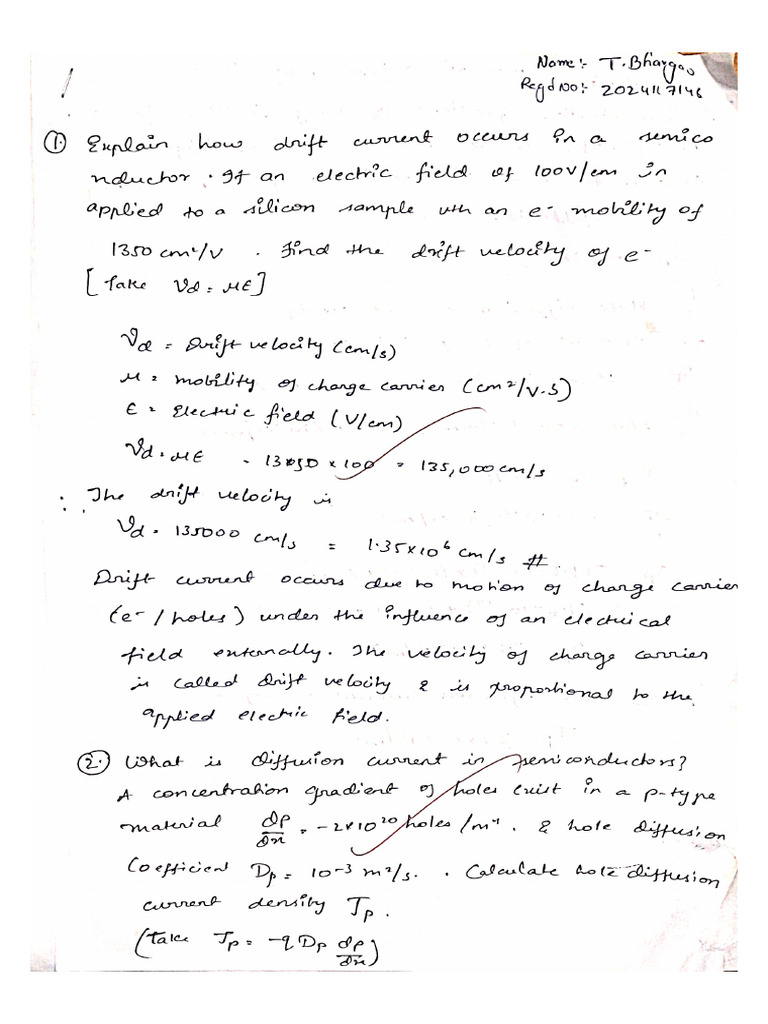 Name:- T. Bhargav
Regd No:- 2024117146
① Explain how drift current occurs in a semico
nductor. If an electric field of 100V/cm in
applied to a silicon sample wth an e- mobility of
1350 cm²/V . find the drift velocity of e-
[Take Vd = μE]
Vd = Drift velocity (cm/s)
μ = mobility of charge carrier (cm²/V.S)
E = Electric field (V/cm)
Vd = μE = 1350 × 100 = 135,000 cm/s
∴ The drift velocity is
Vd = 135000 cm/s = 1.35×10⁶ cm/s #.
Drift current occurs due to motion of charge carrier
(e-/holes) under the influence of an electrical
field externally. The velocity of charge carrier
is called drift velocity & is proportional to the
applied electric field.
②. What is diffusion current in semiconductors?
A concentration gradient of holes exist in a p-type
material dp/dx = -2×10²⁰ holes/m⁴. & hole diffusion
Coefficient Dp = 10⁻³ m²/s. . Calculate hole diffusion
current density Jp.
(Take Jp = -q Dp dp/dx)